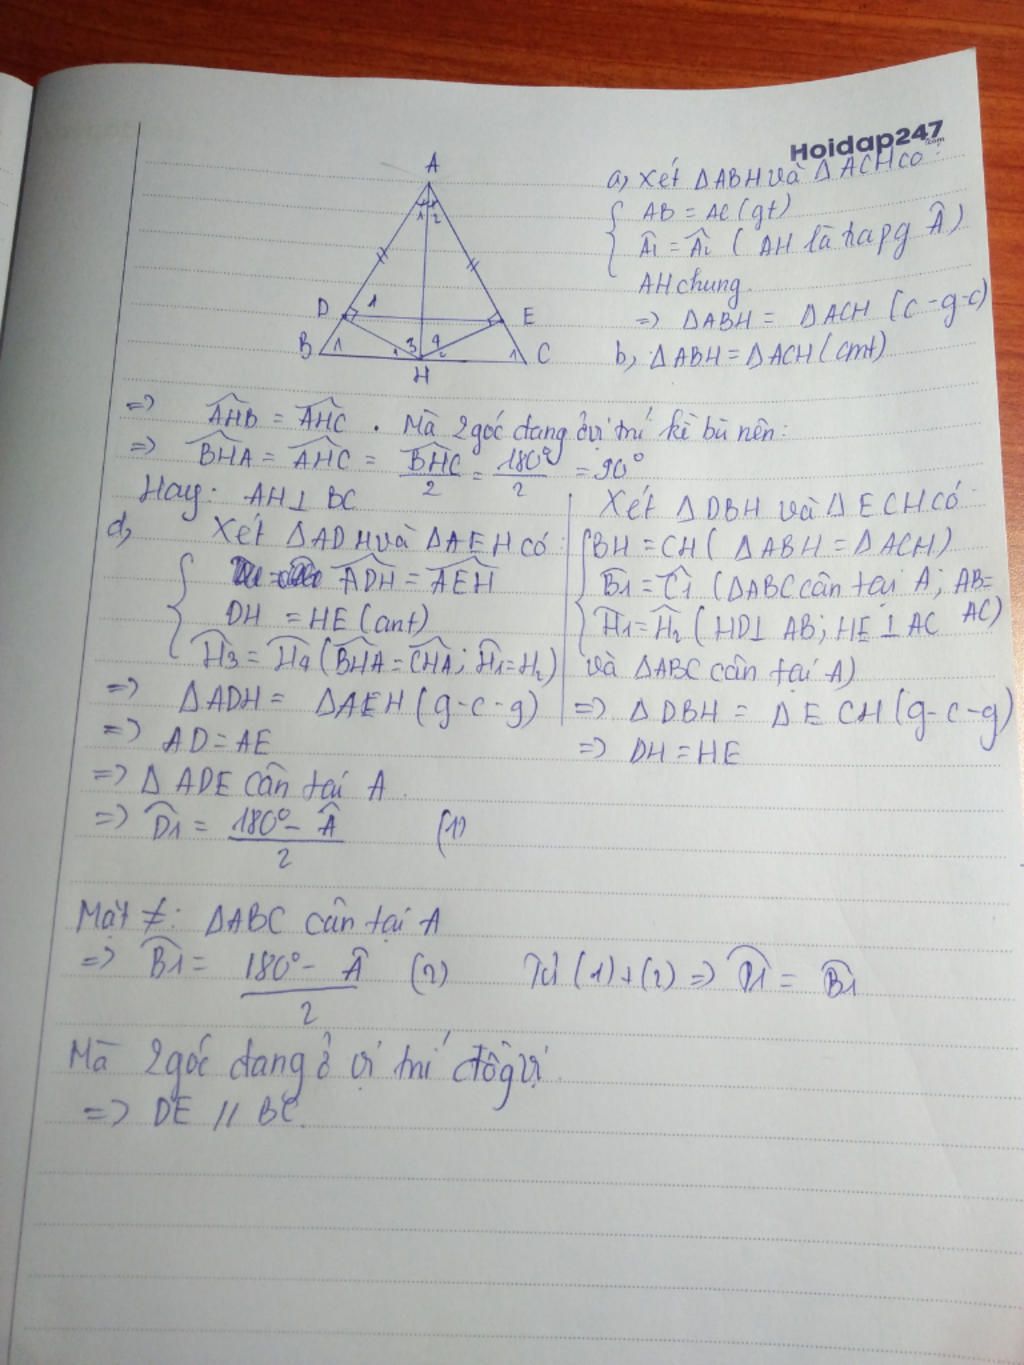 Hoidap247
.com
A
1 2
D 1 E
B 1 1 3 4 2 1 C
H
a, Xét ΔABH và ΔACH có:
AB = AC (gt)
Â1 = Â2 ( AH là Â )
AH chung
=> ΔABH = ΔACH (c-g-c)
b, ΔABH = ΔACH (cmt)
=> AHB^ = AHC^ . Mà 2 góc đang ở vị trí kề bù nên:
=> BHA^ = AHC^ = BHC^/2 = 180°/2 = 90°
Hay: AH⊥BC
d, Xét ΔADH và ΔAEH có
ADH^ = AEH^
DH = HE (cmt)
H3^ = H4^ (BHA^ = CHA^; H1^ = H2)
=> ΔADH = ΔAEH (g-c-g)
=> AD = AE
=> ΔADE cân tại A
=> D1^ = 180° - Â / 2 (1)
Xét ΔDBH và ΔECH có
BH = CH ( ΔABH = ΔACH)
B1^ = C1^ (ΔABC cân tại A; AB =
AC)
H1^ = H2^ ( HD⊥AB; HE⊥AC
và ΔABC cân tại A)
=> ΔDBH = ΔECH (g-c-g)
=> DH = HE
Mặt ≠: ΔABC cân tại A
=> B1^ = 180° - Â / 2 (2) Từ (1)+(2) => D1^ = B1^
Mà 2 góc đang ở vị trí đồg vị
=> DE // BC.